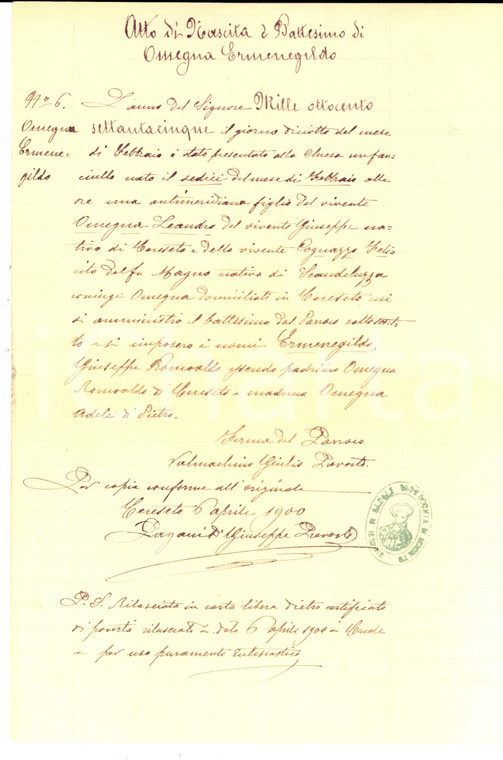 Atto di Nascita e Battesimo di
Omegna Ermenegildo
N° 6.
Omegna
Ermene-
gildo
L'anno del Signore Mille ottocento
settantacinque il giorno diciotto del mese
di Febbraio è stato presentato alla Chiesa un fan-
ciullo nato il sedici del mese di Febbraio alle
ore una antimeridiana figlio del vivente
Omegna Leandro del vivente Giuseppe na-
tivo di Cereseto e della vivente Cognazzo Feli-
cita del fu Magno nativa di Scandeluzza
coniugi Omegna domiciliati in Cereseto cui
si amministrò il battesimo dal Parroco sottoscrit-
to e si imposero i nomi Ermenegildo,
Giuseppe Romoaldo essendo padrino Omegna
Romualdo di Cereseto e madrina Omegna
Adele di Pietro.
Firma del Parroco
Valmachino Giulio Prevosto.
Per copia conforme all'originale
Cereseto 6 Aprile 1900
Pagani D. Giuseppe Prevosto
P. S. Rilasciata in carta libera dietro certificato
di povertà rilasciato in data 6 Aprile 1900 in
e per uso puramente Eclesiastico